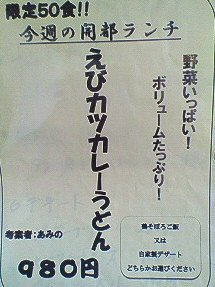 限定50食!!
今週の開都ランチ
野菜いっぱい!
ボリュームたっぷり!
えびカツカレーうどん
考業者:あみの
980円
鶏そぼろご飯
又は
自家製デザート
どちらかお選びください